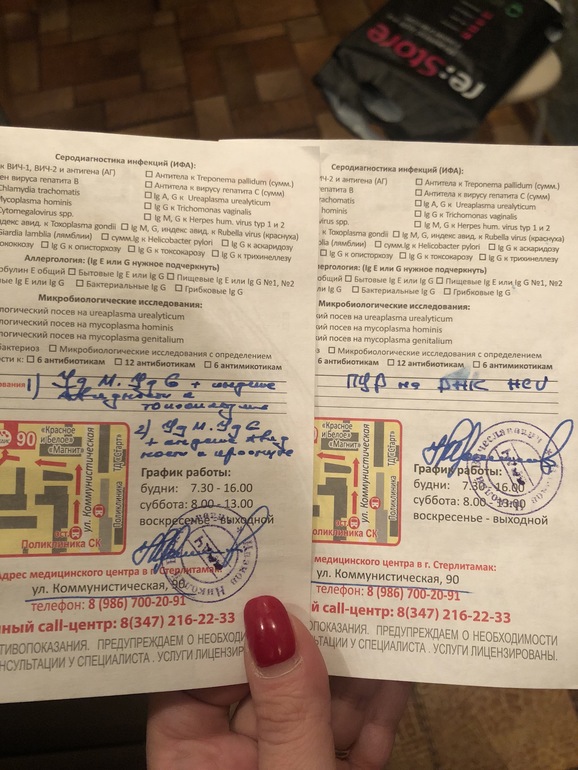 re:Store
Серодиагностика инфекций (ИФА):
к ВИЧ-1, ВИЧ-2 и антигена (АГ)
Антитела к Treponema pallidum (сумм.)
ген вируса гепатита В
Антитела к вирусу гепатита С (сумм)
Chlamydia trachomatis
Ig A, G к Ureaplasma urealyticum
Mycoplasma hominis
Ig G к Trichomonas vaginalis
Cytomegalovirus spp.
Ig M, G к Herpes hum. virus typ 1 и 2
индекс авид. к Toxoplasma gondii Ig M, G, индекс авид. к Rubella virus (краснуха)
Giardia lamblia (лямблии) сумм.Ig к Helicobacter pylori Ig G к аскаридозу
Ig G к описторхозу Ig G к токсокарозу Ig G к трихинеллезу
Аллергология: (Ig E или G нужное подчеркнуть)
обулин Е общий Бытовые Ig E или Ig G Пищевые Ig E или Ig G №1, №2
ые Ig E или Ig G Бактериальные Ig G Грибковые Ig G
Микробиологические исследования:
логический посев на ureaplasma urealyticum
логический посев на mycoplasma hominis
логический посев на mycoplasma genitalium
бактериоз Микробиологические исследования с определением
ости к: 6 антибиотикам 12 антибиотикам 6 антимикотикам
1) Ig M. Ig G + индекс
авидности к
токсоплазме
2) Ig M. Ig G
+ индекс авид
ности к краснухе
90
«Красное и Белое»
«Магнит»
ул. Коммунистическая
Поликлиника
ТД «Старт»
Ост.
Поликлиника СК
График работы:
будни: 7.30 - 16.00
суббота: 8.00 - 13.00
воскресенье - выходной
Адрес медицинского центра в г. Стерлитамак:
ул. Коммунистическая, 90
телефон: 8 (986) 700-20-91
ный call-центр: 8(347) 216-22-33
ТИВОПОКАЗАНИЯ. ПРЕДУПРЕЖДАЕМ О НЕОБХОДИМОСТИ
НСУЛЬТАЦИИ У СПЕЦИАЛИСТА . УСЛУГИ ЛИЦЕНЗИРО
Серодиагностика инфекций (ИФА):
Ч-2 и антигена (АГ)
Антитела к Treponema pallidum (сумм.)
епатита В
Антитела к вирусу гепатита С (сумм)
rachomatis
Ig A, G к Ureaplasma urealyticum
hominis
Ig G к Trichomonas vaginalis
irus spp.
Ig M, G к Herpes hum. virus typ 1 и 2
авид. к Toxoplasma gondii Ig M, G, индекс авид. к Rubella virus (краснуха)
lia (лямблии) сумм.Ig к Helicobacter pylori Ig G к аскаридозу
Ig G к описторхозу Ig G к токсокарозу Ig G к трихинеллезу
ергология: (Ig E или G нужное подчеркнуть)
общий Бытовые Ig E или Ig G Пищевые Ig E или Ig G №1, №2
или Ig G Бактериальные Ig G Грибковые Ig G
Микробиологические исследования:
кий посев на ureaplasma urealyticum
кий посев на mycoplasma hominis
кий посев на mycoplasma genitalium
Микробиологические исследования с определением
6 антибиотикам 12 антибиотикам 6 антимикотикам
ПЦР на РНК HCV
«Красное и Белое»
«Магнит»
ул. Коммунистическая
Поликлиника
ТД «Старт»
Ост.
Поликлиника СК
График работы:
будни: 7.30 - 16.00
суббота: 8.00 - 13.00
воскресенье - выходной
медицинского центра в г. Стерлитамак:
ул. Коммунистическая, 90
телефон: 8 (986) 700-20-91
call-центр: 8(347) 216-22-33
ПОКАЗАНИЯ. ПРЕДУПРЕЖДАЕМ О НЕОБХОДИМОСТИ
ТАЦИИ У СПЕЦИАЛИСТА . УСЛУГИ ЛИЦЕНЗИРОВАНЫ.